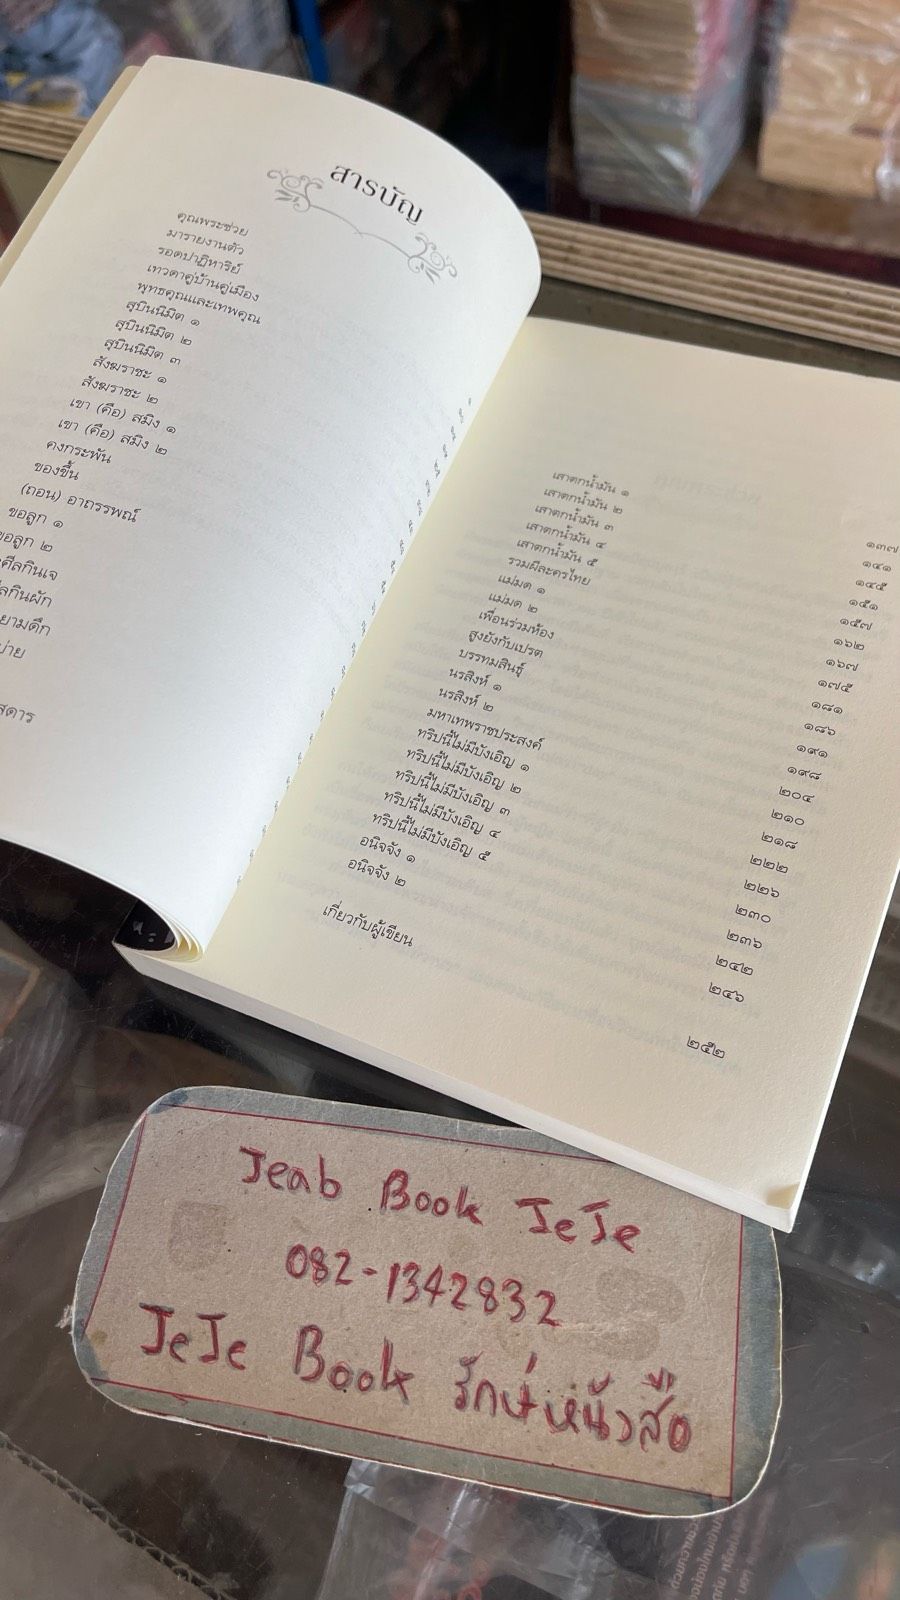 สารบัญ
คุณพระช่วย
มารายงานตัว
รอดปาฏิหาริย์
เทวดาคู่บ้านคู่เมือง
พุทธคุณและเทพคุณ
สุบินนิมิต ๑
สุบินนิมิต ๒
สุบินนิมิต ๓
สังฆราชะ ๑
สังฆราชะ ๒
เขา (คือ) สมิง ๑
เขา (คือ) สมิง ๒
คงกระพัน
ของขึ้น
(ถอน) อาถรรพณ์
ขอลูก ๑
ขอลูก ๒
ศีลกินเจ
ลกินผัก
ยามดึก
บ่าย
สดาร
เสาตกน้ำมัน ๑ ๑๓๗
เสาตกน้ำมัน ๒ ๑๔๑
เสาตกน้ำมัน ๓ ๑๔๕
เสาตกน้ำมัน ๔ ๑๕๑
เสาตกน้ำมัน ๕ ๑๕๗
รวมผีละครไทย ๑๖๒
แม่มด ๑ ๑๖๗
แม่มด ๒ ๑๗๕
เพื่อนร่วมห้อง ๑๘๑
สูงยังกับเปรต ๑๘๖
บรรทมสินธุ์ ๑๙๑
นรสิงห์ ๑ ๑๙๘
นรสิงห์ ๒ ๒๐๔
มหาเทพราชประสงค์ ๒๑๐
ทริปนี้ไม่มีบังเอิญ ๑ ๒๑๘
ทริปนี้ไม่มีบังเอิญ ๒ ๒๒๒
ทริปนี้ไม่มีบังเอิญ ๓ ๒๒๖
ทริปนี้ไม่มีบังเอิญ ๔ ๒๓๐
ทริปนี้ไม่มีบังเอิญ ๕ ๒๓๖
อนิจจัง ๑ ๒๔๒
อนิจจัง ๒ ๒๔๖
เกี่ยวกับผู้เขียน ๒๕๒
Jeab Book JeJe
082-1342832
JeJe Book รักษ์หนังสือ